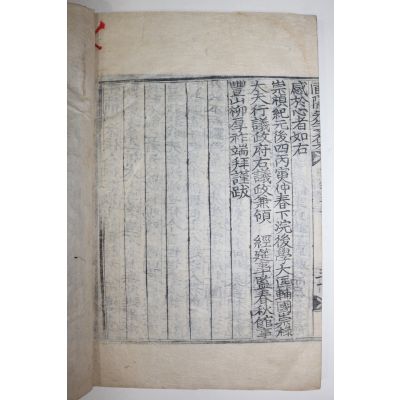 感於心者如右
崇禎紀元後四丙寅仲春下浣後學大匡輔國崇祿
大夫行議政府右議政兼領 經筵事監春秋館事
豐山柳厚祚端拜謹跋